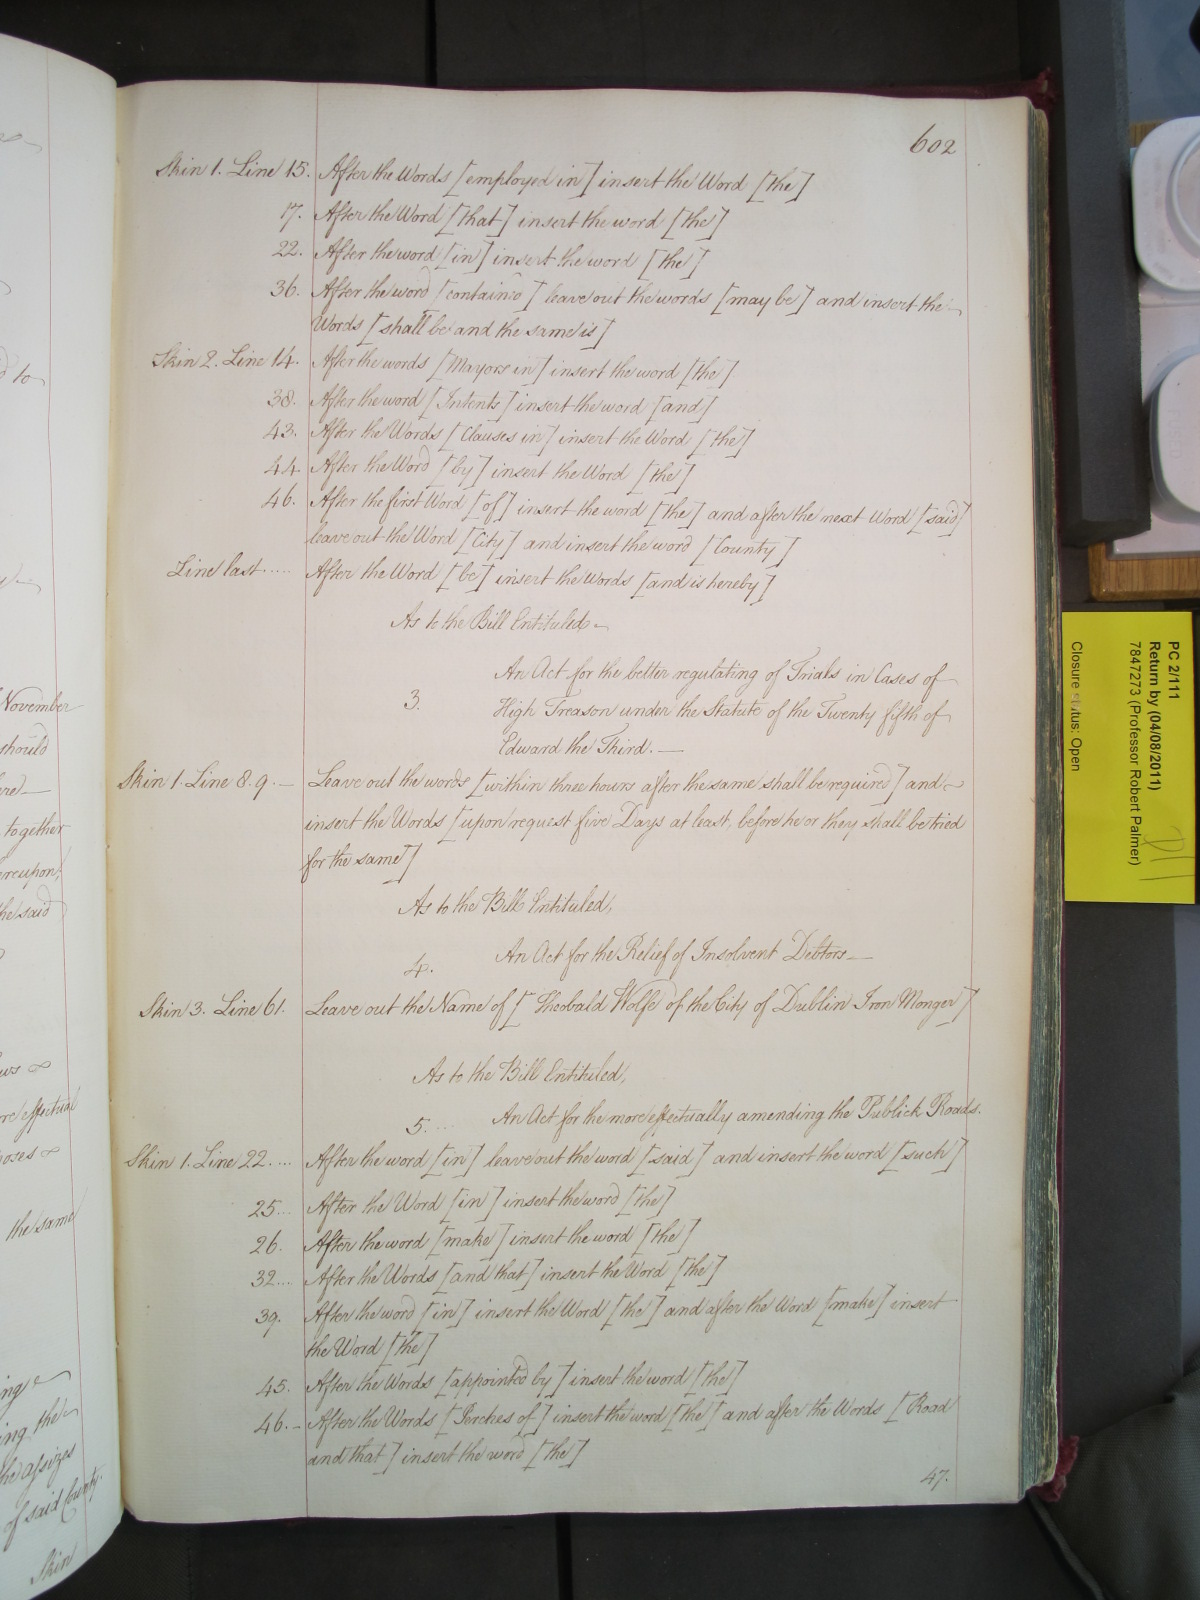 602
Skin 1. Line 15. After the Words [employed in] insert the Word [the]
17. After the Word [that] insert the word [the]
22. After the word [in] insert the word [the]
36. After the word [contain'd] leave out the words [may be] and insert the
Words [shall be and the same is]
Skin 2. Line 14. After the words [Mayors in] insert the word [the]
38. After the word [Intents] insert the word [and]
43. After the Words [Clauses in] insert the Word [the]
44. After the Word [by] insert the Word [the]
46. After the first Word [of] insert the word [the] and after the next Word [said]
leave out the Word [City] and insert the word [County]
Line last ..... After the Word [be] insert the Words [and is hereby]
As to the Bill Entituled
An Act for the better regulating of Trials in Cases of
3. High Treason under the Statute of the Twenty fifth of
Edward the Third.
Skin 1 Line 8.9. Leave out the words [within three hours after the same shall be required] and
insert the Words [upon request five Days at least, before he or they shall be tried
for the same]
As to the Bill Entituled,
4. An Act for the Relief of Insolvent Debtors
Skin 3. Line 61. Leave out the Name of [Theobald Wolfe of the City of Dublin Iron Monger]
As to the Bill Entituled,
5. ... An Act for the more effectually amending the Publick Roads.
Skin 1. Line 22. ... After the word [in] leave out the word [said] and insert the word [such]
25... After the Word [in] insert the word [the]
26. After the word [make] insert the word [the]
32... After the Words [and that] insert the Word [the]
39. After the word [in] insert the Word [the] and after the Word [make] insert
the Word [the]
45. After the Words [appointed by] insert the word [the]
46. After the Words [Perches of] insert the word [the] and after the Words [Road
and that] insert the word [the]
47.
November
should
together
the said
the same
the assizes
of said County.
Skin
PC 2/111
Return by (04/08/2011)
7847273 (Professor Robert Palmer)
Closure status: Open